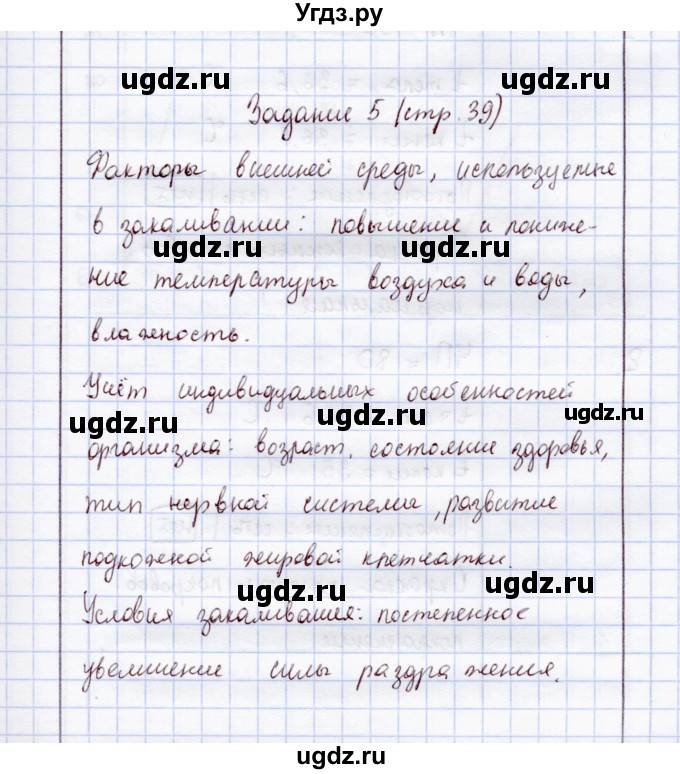 Угдз.ру
ugdz.ru ugdz.ru
Задание 5 (стр. 39)
ugdz.ru
Факторы внешней среды, используемые
ugdz.ru
в закаливании: повышение и пониже-
ugdz.ru ugdz.ru
ние температуры воздуха и воды,
влажность.
Учёт индивидуальных особенностей
ugdz.ru ugdz.ru ugdz.ru
организма: возраст, состояние здоровья,
тип нервной системы, развитие
ugdz.ru
подкожной жировой клетчатки.
ugdz.ru ugdz.ru
Условия закаливания: постепенное
увеличение силы раздражения.
ugdz.ru
ugdz.ru